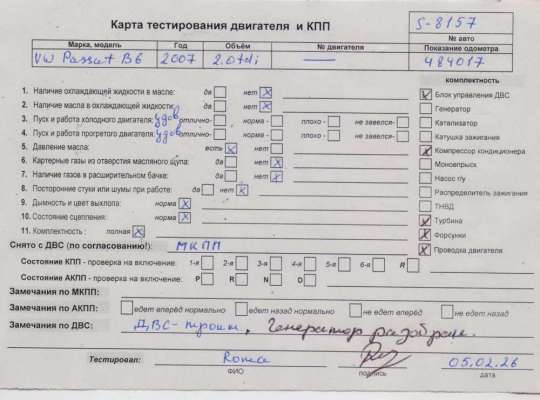 Карта тестирования двигателя и КПП
S-8157
№ авто
Марка, модель Год Объём № двигателя Показание одометра
VW Passat B6 2007 2.0tdi — 484017
комплектность
1. Наличие охлаждающей жидкости в масле: да нет x
2. Наличие масла в охлаждающей жидкости: да нет x
3. Пуск и работа холодного двигателя: удов отлично- норма - плохо - не завелся-
4. Пуск и работа прогретого двигателя: удов отлично- норма - плохо - не завелся-
5. Давление масла: есть x нет
6. Картерные газы из отверстия масляного щупа: да нет x
7. Наличие газов в расширительном бачке: да нет x
8. Посторонние стуки или шумы при работе: да нет x
9. Дымность и цвет выхлопа: норма x
10. Состояние сцепления: норма x
11. Комплектность : полная x
Блок управления ДВС
Генератор
Катализатор
Катушка зажигания
x Компрессор кондиционера
Моновпрыск
Насос г\у
Распределитель зажигания
ТНВД
x Турбина
x Форсунки
x Проводка двигателя
Снято с ДВС (по согласованию!): МКПП
Состояние КПП - проверка на включение: 1-я 2-я 3-я 4-я 5-я 6-я R
Состояние АКПП - проверка на включение: P R N D
Замечания по МКПП:
Замечания по АКПП: едет вперёд нормально едет назад нормально не едет вперёд не едет назад
Замечания по ДВС: ДВС-троит, Генератор разобран.
Тестировал: Roma 05.02.26
ФИО подпись дата